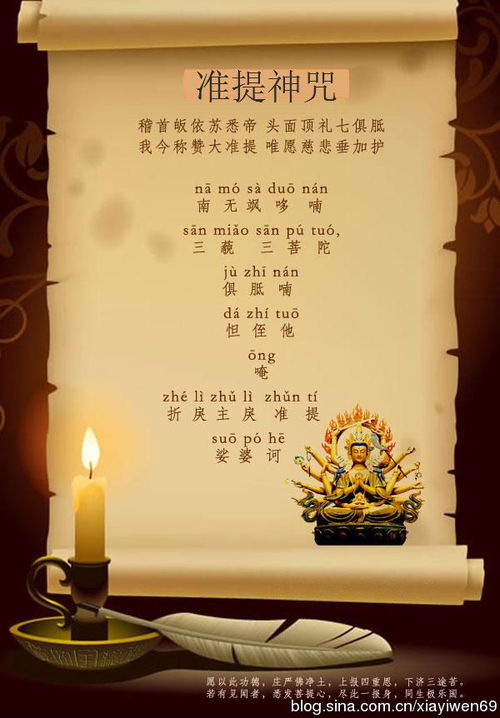 准提神咒
稽首皈依苏悉帝 头面顶礼七俱胝
我今称赞大准提 唯愿慈悲垂加护
nā mó sà duō nán
南 无 飒 哆 喃
sān miǎo sān pú tuó,
三 藐 三 菩 陀
jù zhī nán
俱 胝 喃
dá zhí tuō
怛 侄 他
ōng
唵
zhé lì zhǔ lì zhǔn tí
折 戾 主 戾 准 提
suō pó hē
娑 婆 诃
愿以此功德，庄严佛净土，上报四重恩，下济三途苦。
若有见闻者，悉发菩提心，尽此一报身，同生极乐国。
blog.sina.com.cn/xiayiwen69